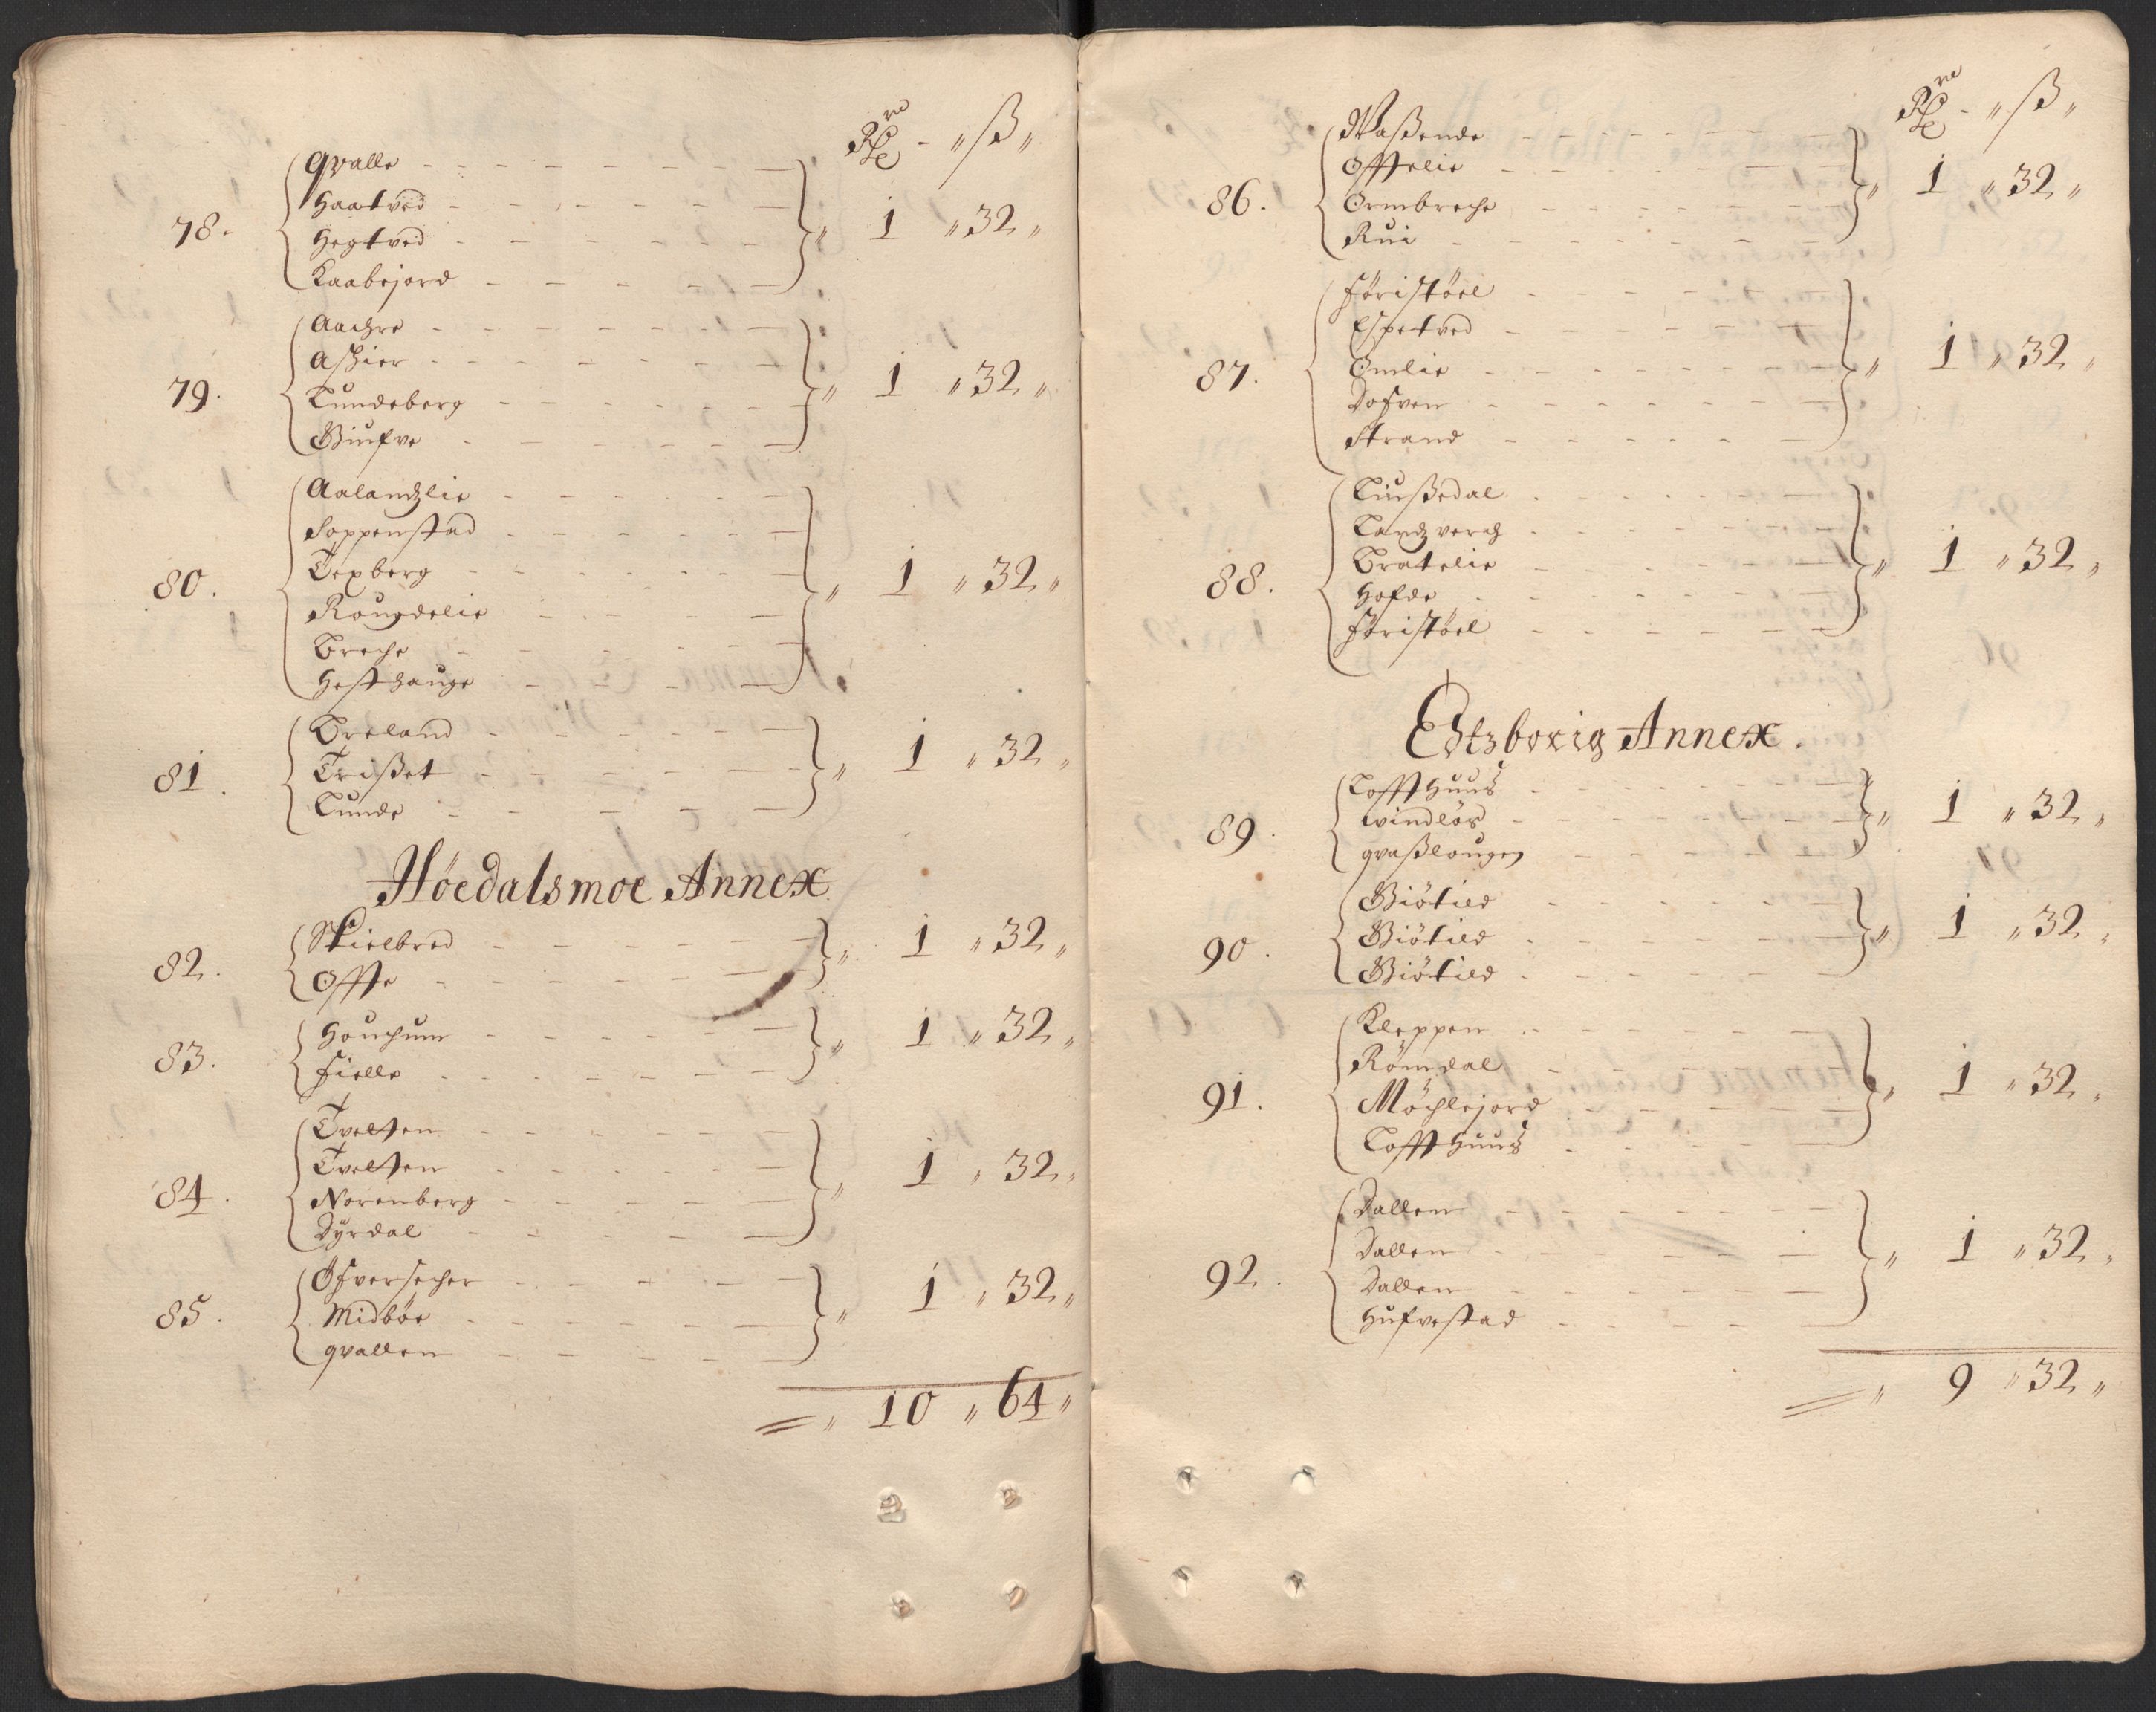 Rdr - " ß "
78. Qvalle
Haatved
Hegtved
Kaabejord
" 1 " 32 "
79. Aachre
Aschier
Lundeberg
Biufve
" 1 " 32 "
80. Aalandzlie
Soppenstad
Texberg
Rougdelie
Breche
Hesthauge
" 1 " 32 "
81. Breland
Trißet
Lunde
" 1 " 32 "
Höedalsmoe Annex
82. Skielbred
Offte
" 1 " 32 "
83. Houchum
Fielle
" 1 " 32 "
84. Tvelten
Tvelten
Norenberg
Dyrdal
" 1 " 32 "
85. Öfversecher
Midböe
qvallen
" 1 " 32 "
" 10 " 64 "
Rdr - " ß "
86. Waßende
Offtelie
Ormbreche
Rui
" 1 " 32 "
87. Föristöel
Espetved
Omlie
Dofven
Strand
" 1 " 32 "
88. Liußedal
Landzverch
Bratelie
Hofde
Föristöel
" 1 " 32 "
Edtzborig Annex.
89. Loffthuus
vindlös
gvaßlougen
" 1 " 32 "
90. Biötied
Biötied
Biötied
" 1 " 32 "
91. Kleppen
Römdal
Möchlejord
Loffthuus
" 1 " 32 "
92. Dallen
Dallen
Dallen
Hufvestad
" 1 " 32 "
" 9 " 32 "